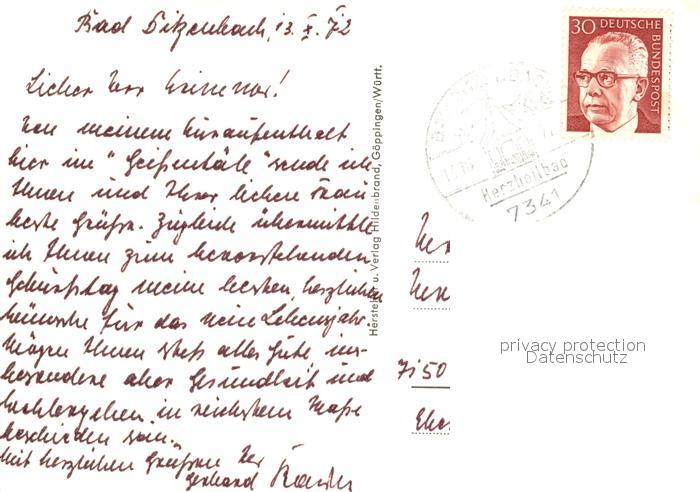 Bad Ditzenbach, 13. X. 72
Lieber Herr
Von meinem Kuraufenthalt
hier im "Geißentäle" sende ich
Ihnen und Ihrer lieben Frau
beste Grüße. Zugleich übermittle
ich Ihnen zum bevorstehenden
Geburtstag meine besten herzlichen
Wünsche für das neue Lebensjahr.
Mögen Ihnen stets alles Gute ins-
besondere aber Gesundheit und
Wohlergehen in reichstem Maße
beschieden sein.
Mit herzlichen Grüßen Ihr
Gerhard
Hersteller u. Verlag Hildenbrand, Göppingen/Württ.
30 DEUTSCHE
BUNDESPOST
Herzheilbad
7341
privacy protection
Datenschutz